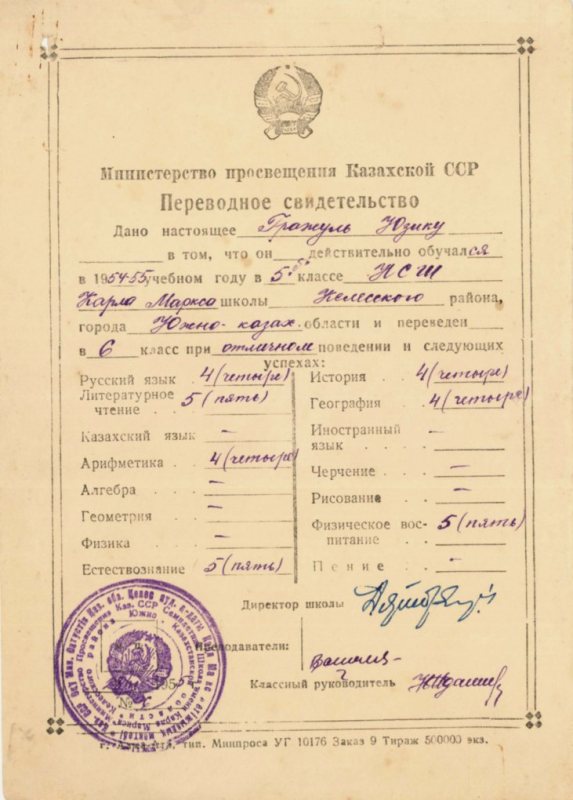 Министерство просвещения Казахской ССР
Переводное свидетельство
Дано настоящее Гражуль Юзику
в том, что он действительно обучался
в 1954-55 учебном году в 5 классе НСШ
Карла Маркса школы Келесского района,
города Южно-казах. области и переведен
в 6 класс при отличном поведении и следующих
успехах:
Русский язык 4 (четыре)
Литературное
чтение 5 (пять)
Казахский язык –
Арифметика 4 (четыре)
Алгебра –
Геометрия –
Физика –
Естествознание 5 (пять)
История 4 (четыре)
География 4 (четыре)
Иностранный
язык –
Черчение –
Рисование –
Физическое вос-
питание 5 (пять)
Пение –
Директор школы
Преподаватели:
Классный руководитель
тип. Минпроса УГ 10176 Заказ 9 Тираж 500000 экз.